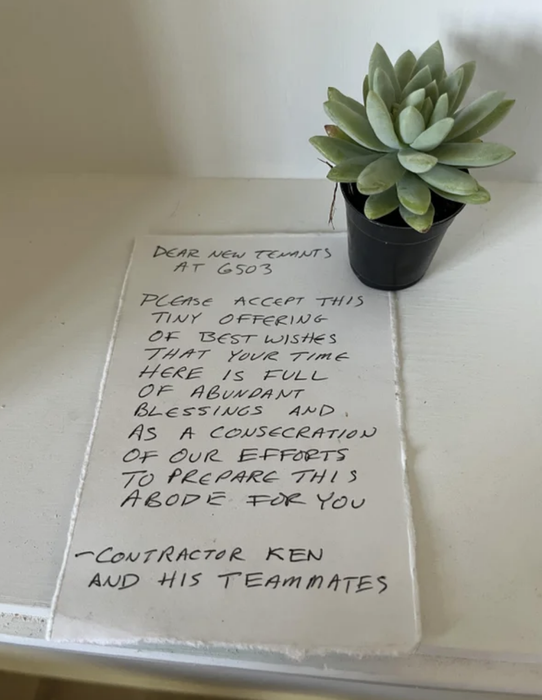 DEAR NEW TENANTS
AT 6503
PLEASE ACCEPT THIS
TINY OFFERING
OF BEST WISHES
THAT YOUR TIME
HERE IS FULL
OF ABUNDANT
BLESSINGS AND
AS A CONSECRATION
OF OUR EFFORTS
TO PREPARE THIS
ABODE FOR YOU
-CONTRACTOR KEN
AND HIS TEAMMATES